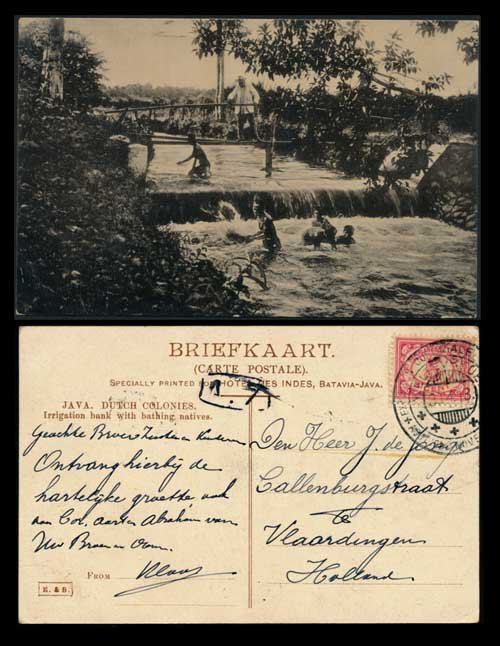 BRIEFKAART.
(CARTE POSTALE).
SPECIALLY PRINTED FOR HOTEL DES INDES, BATAVIA-JAVA.
JAVA. DUTCH COLONIES.
Irrigation bank with bathing natives.
Geachte Broer Zuster en Kinderen
Ontvang hierbij de
hartelijke groeten ook
aan Cor. Aarten Abraham van
Uw Broer en Oom.
FROM Klaas
E. & B.
Den Heer J. de
Callenburgstraat
Te
Vlaardingen
Holland